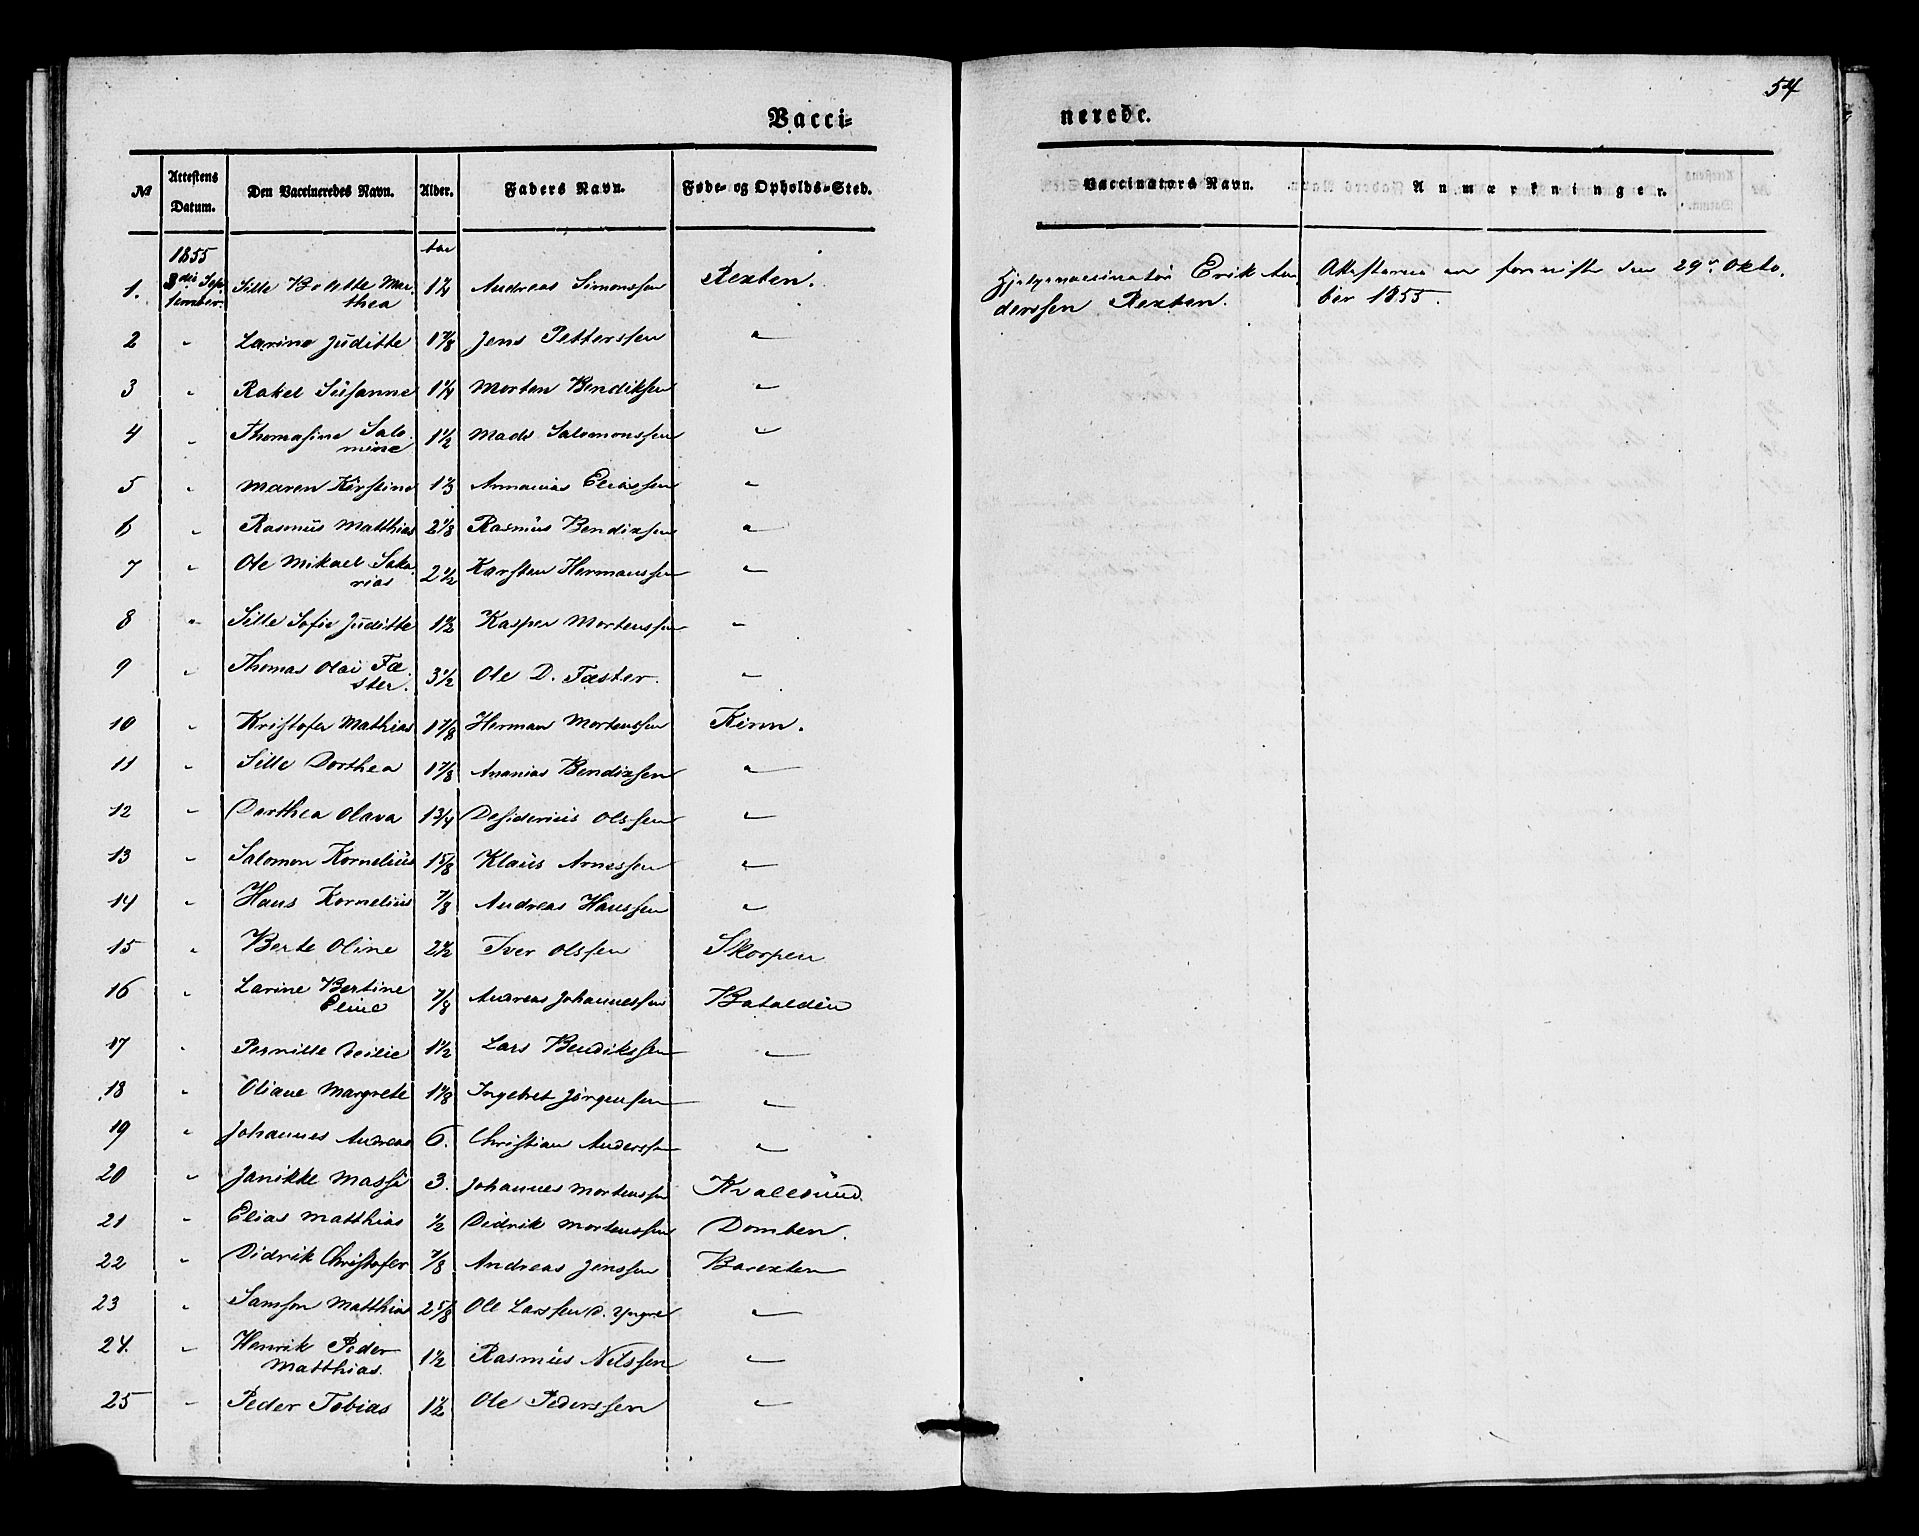 54
Vacci- nerede.
№ Attestens Datum. Den Vaccineredes Navn. Alder. Faders Navn. Føde- og Opholds-Sted. Vaccinators Navn. Anmærkninger.
1855
1. 3die September. Sille Bolette Marthea 1¼ Andreas Simonssen Rexten. Hjelpevaccinatør Erik Anderssen Rexten. Attesterne er forevist den 29. Oktober 1855.
2 " Larine Juditte 1⅞ Jens Petterssen "
3 " Rakel Susanne 1¼ Morten Bendiksen "
4 " Thomasine Salomine 1½ Mads Salomonssen "
5 " Maren Kirstine Annanias Eliassen "
6 " Rasmus Matthias 2⅛ Rasmus Bendixsen "
7 " Ole Mikael Sakarias 2½ Karsten Hermanssen "
8 " Sille Sofie Juditte 1½ Kasper Mortenssen "
9 " Thomas Olai Fæster. 3½ Ole D. Fæster. "
10 " Kristofer Mathias 1⅞ Herman Mortenssen Kinn.
11 " Sille Dorthea 1⅞ Ananias Bendixsen "
12 " Dorthea Olava 1¾ Desiderius Olssen "
13 " Salomon Kornelius 1⅝ Klaus Arnessen "
14 " Hans Kornelius ⅞ Andreas Hanssen "
15 " Berte Oline 2½ Iver Olssen Skorpen
16 " Larine Bertine Eline ⅞ Andreas Johannessen Batalden
17 " Pernille 1½ Lars Bendikssen "
18 " Oliane Margrete 1⅛ Ingebret Jørgensen "
19 " Johannes Andreas 6. Christian Anderssen "
20 " Janikke Massi 3. Johannes Mortenssen Kvalesund.
21 " Elias Matthias ½ Didrik Mortenssen Domben.
22 " Didrik Christofer ⅞ Andreas Jenssen Barexten
23 " Samson Matthias 2⅝ Ole Larssen d. yngre "
24. " Henrik Peder Matthias. 1½ Rasmus Nilssen "
25 " Peder Tobias 1½ Ole Pederssen "